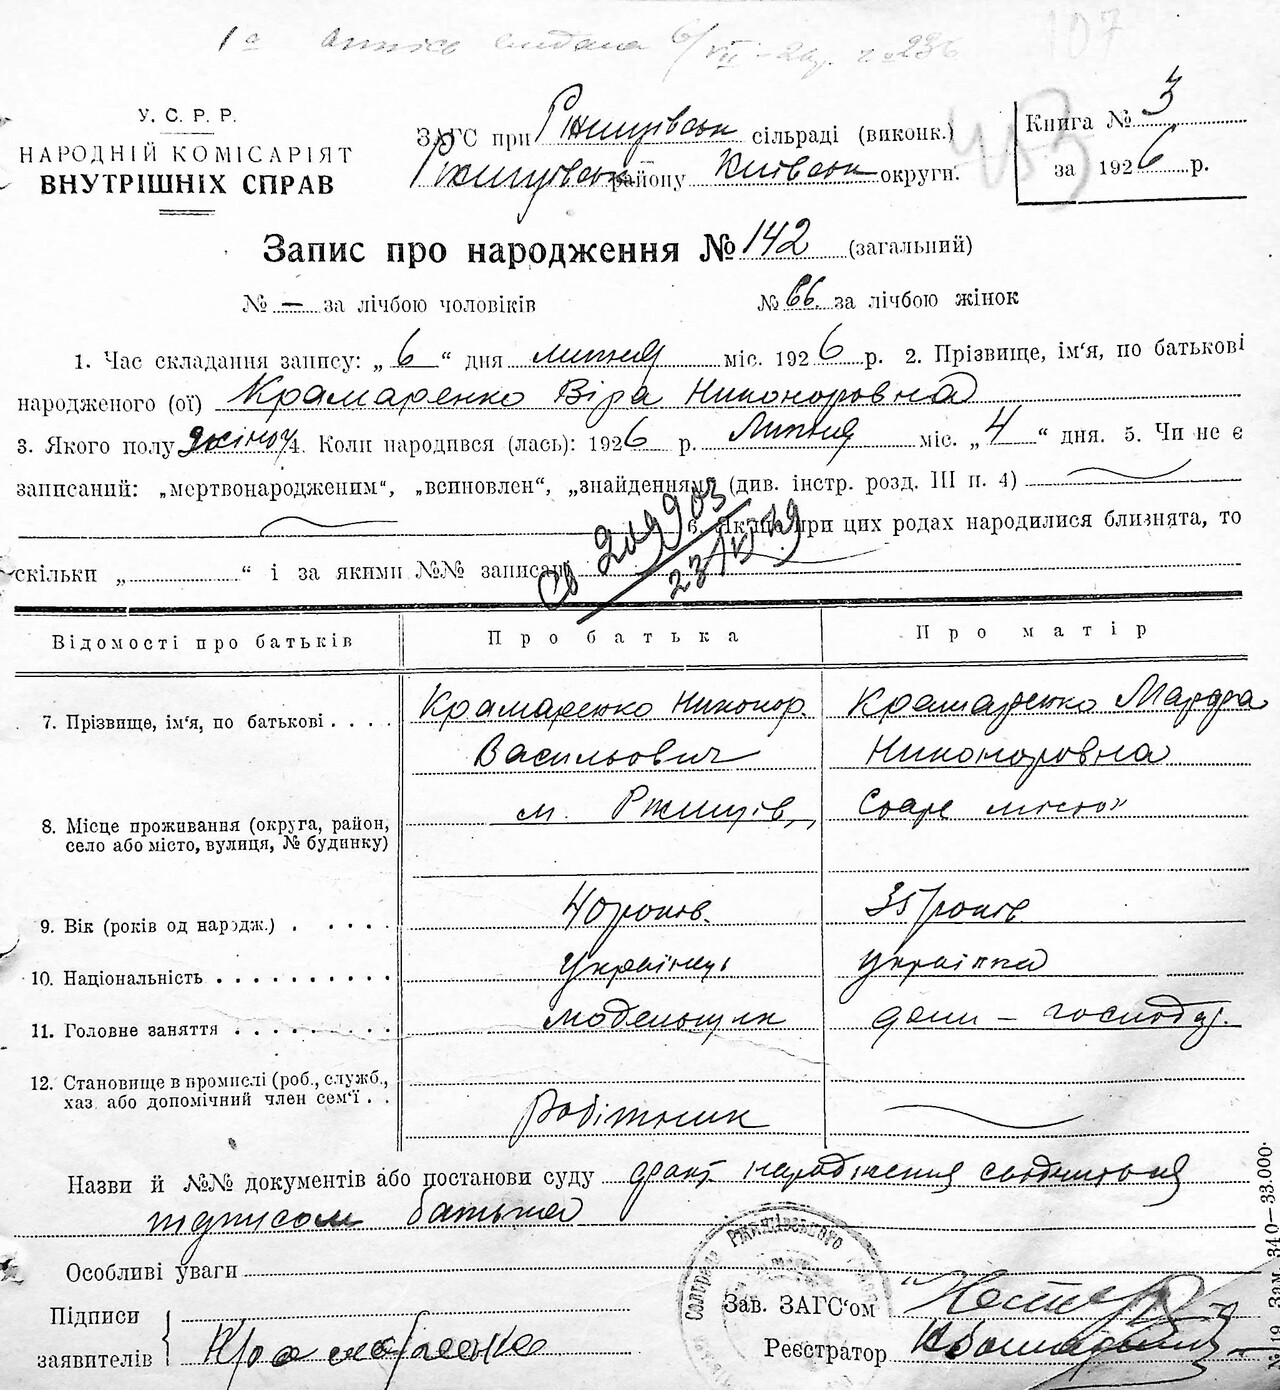 1а випись видана 6/VII-26р. №236
107
У. С. Р. Р.
НАРОДНІЙ КОМІСАРІЯТ
ВНУТРІШНІХ СПРАВ
ЗАГС при Ржищівськ сільраді (виконк.)
Ржищівськ району Київськ округи.
Книга № 3
за 1926 р.
Запис про народження № 142 (загальний)
№ — за лічбою чоловіків № 66 за лічбою жінок
1. Час складання запису: „6“ дня липня міс. 1926 р. 2. Прізвище, ім‘я, по батькові
народженого (ої) Крамаренко Віра Никоноровна
3. Якого полу жіноч 4. Коли народився (лась): 1926 р. Липня міс. „4“ дня. 5. Чи не є
записаний: „мертвонародженим“, „всиновлен“, „знайденням“ (див. інстр. розд. III п. 4)
6. Якщо при цих родах народилися близнята, то
скільки „ “ і за якими №№ записані
209903
23/VI 29
Відомості про батьків Про батька Про матір
7. Прізвище, ім‘я, по батькові . . . . Крамаренко Никонор. Крамаренко Марфа
Васильович Никоноровна
8. Місце проживання (округа, район, село або місто, вулиця, № будинку) м. Ржищів,, Старе місто"
9. Вік (років од народж.) . . . . . 40 років. 35 років
10. Національність . . . . . . . . . . Українець українка
11. Головне заняття . . . . . . . . . модельщик дом – господар.
12. Становище в промислі (роб., служб.,
хаз. або допомічний член сем‘ї . . Робітник
Назви й №№ документів або постанови суду факт народження стверджується
підписом батька
Особливі уваги
Підписи
заявителів Крамаренко
Зав. ЗАГС‘ом
Реєстратор
Ржищівського
№ 19. Зам. 340—33.000.